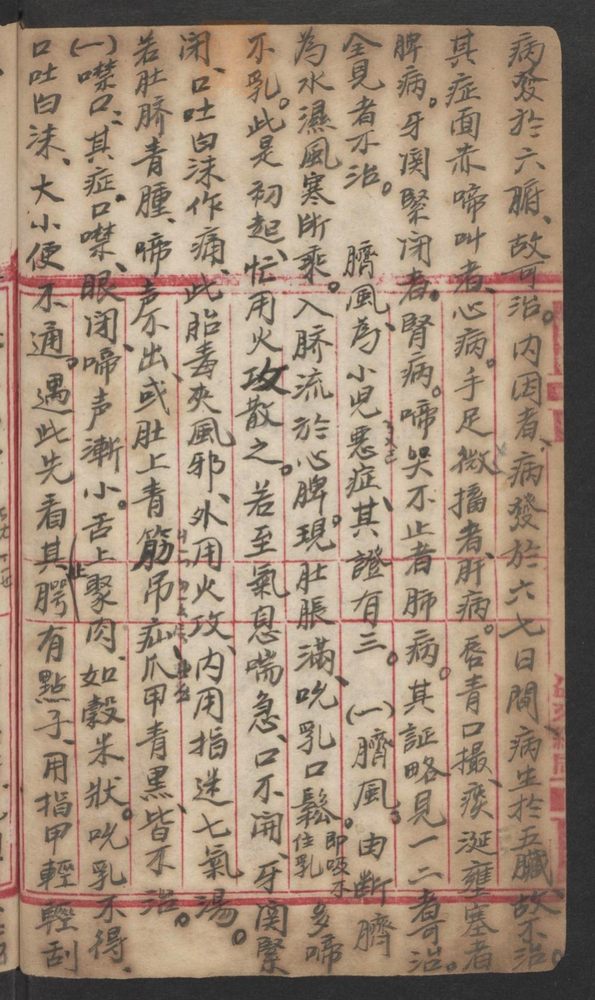 病發於六腑、故可治。內因者、病發於六七日間、病生於五臟、故不治。
其症面赤啼叫者、心病。手足微搐者、肝病。唇青口撮、痰涎壅塞者
脾病。牙関緊闭者、腎病。啼哭不止者肺病。其証略見一二者可治。
全見者不治。　臍風為小児惡症、其證有三。(一)臍風。由断臍
為水濕風寒所乘。入脐流於心脾。現肚脹滿、吮乳口鬆即吸不住乳多啼
不乳。此是初起、忙用火攻散之。若至氣息喘急、口不開、牙関緊
闭、口吐白沫作痛、此胎毒夾風邪、外用火攻、內用指迷七氣湯。
若肚脐青腫、啼声不出、或肚上青筋吊疝爪甲青黑、皆不治。
(一)噤口、其症口噤、眼闭啼声漸小。舌上聚肉、如穀米狀。吮乳不得、
口吐白沫、大小便不通。遇此先看其上腭有點子、用指甲輕輕刮